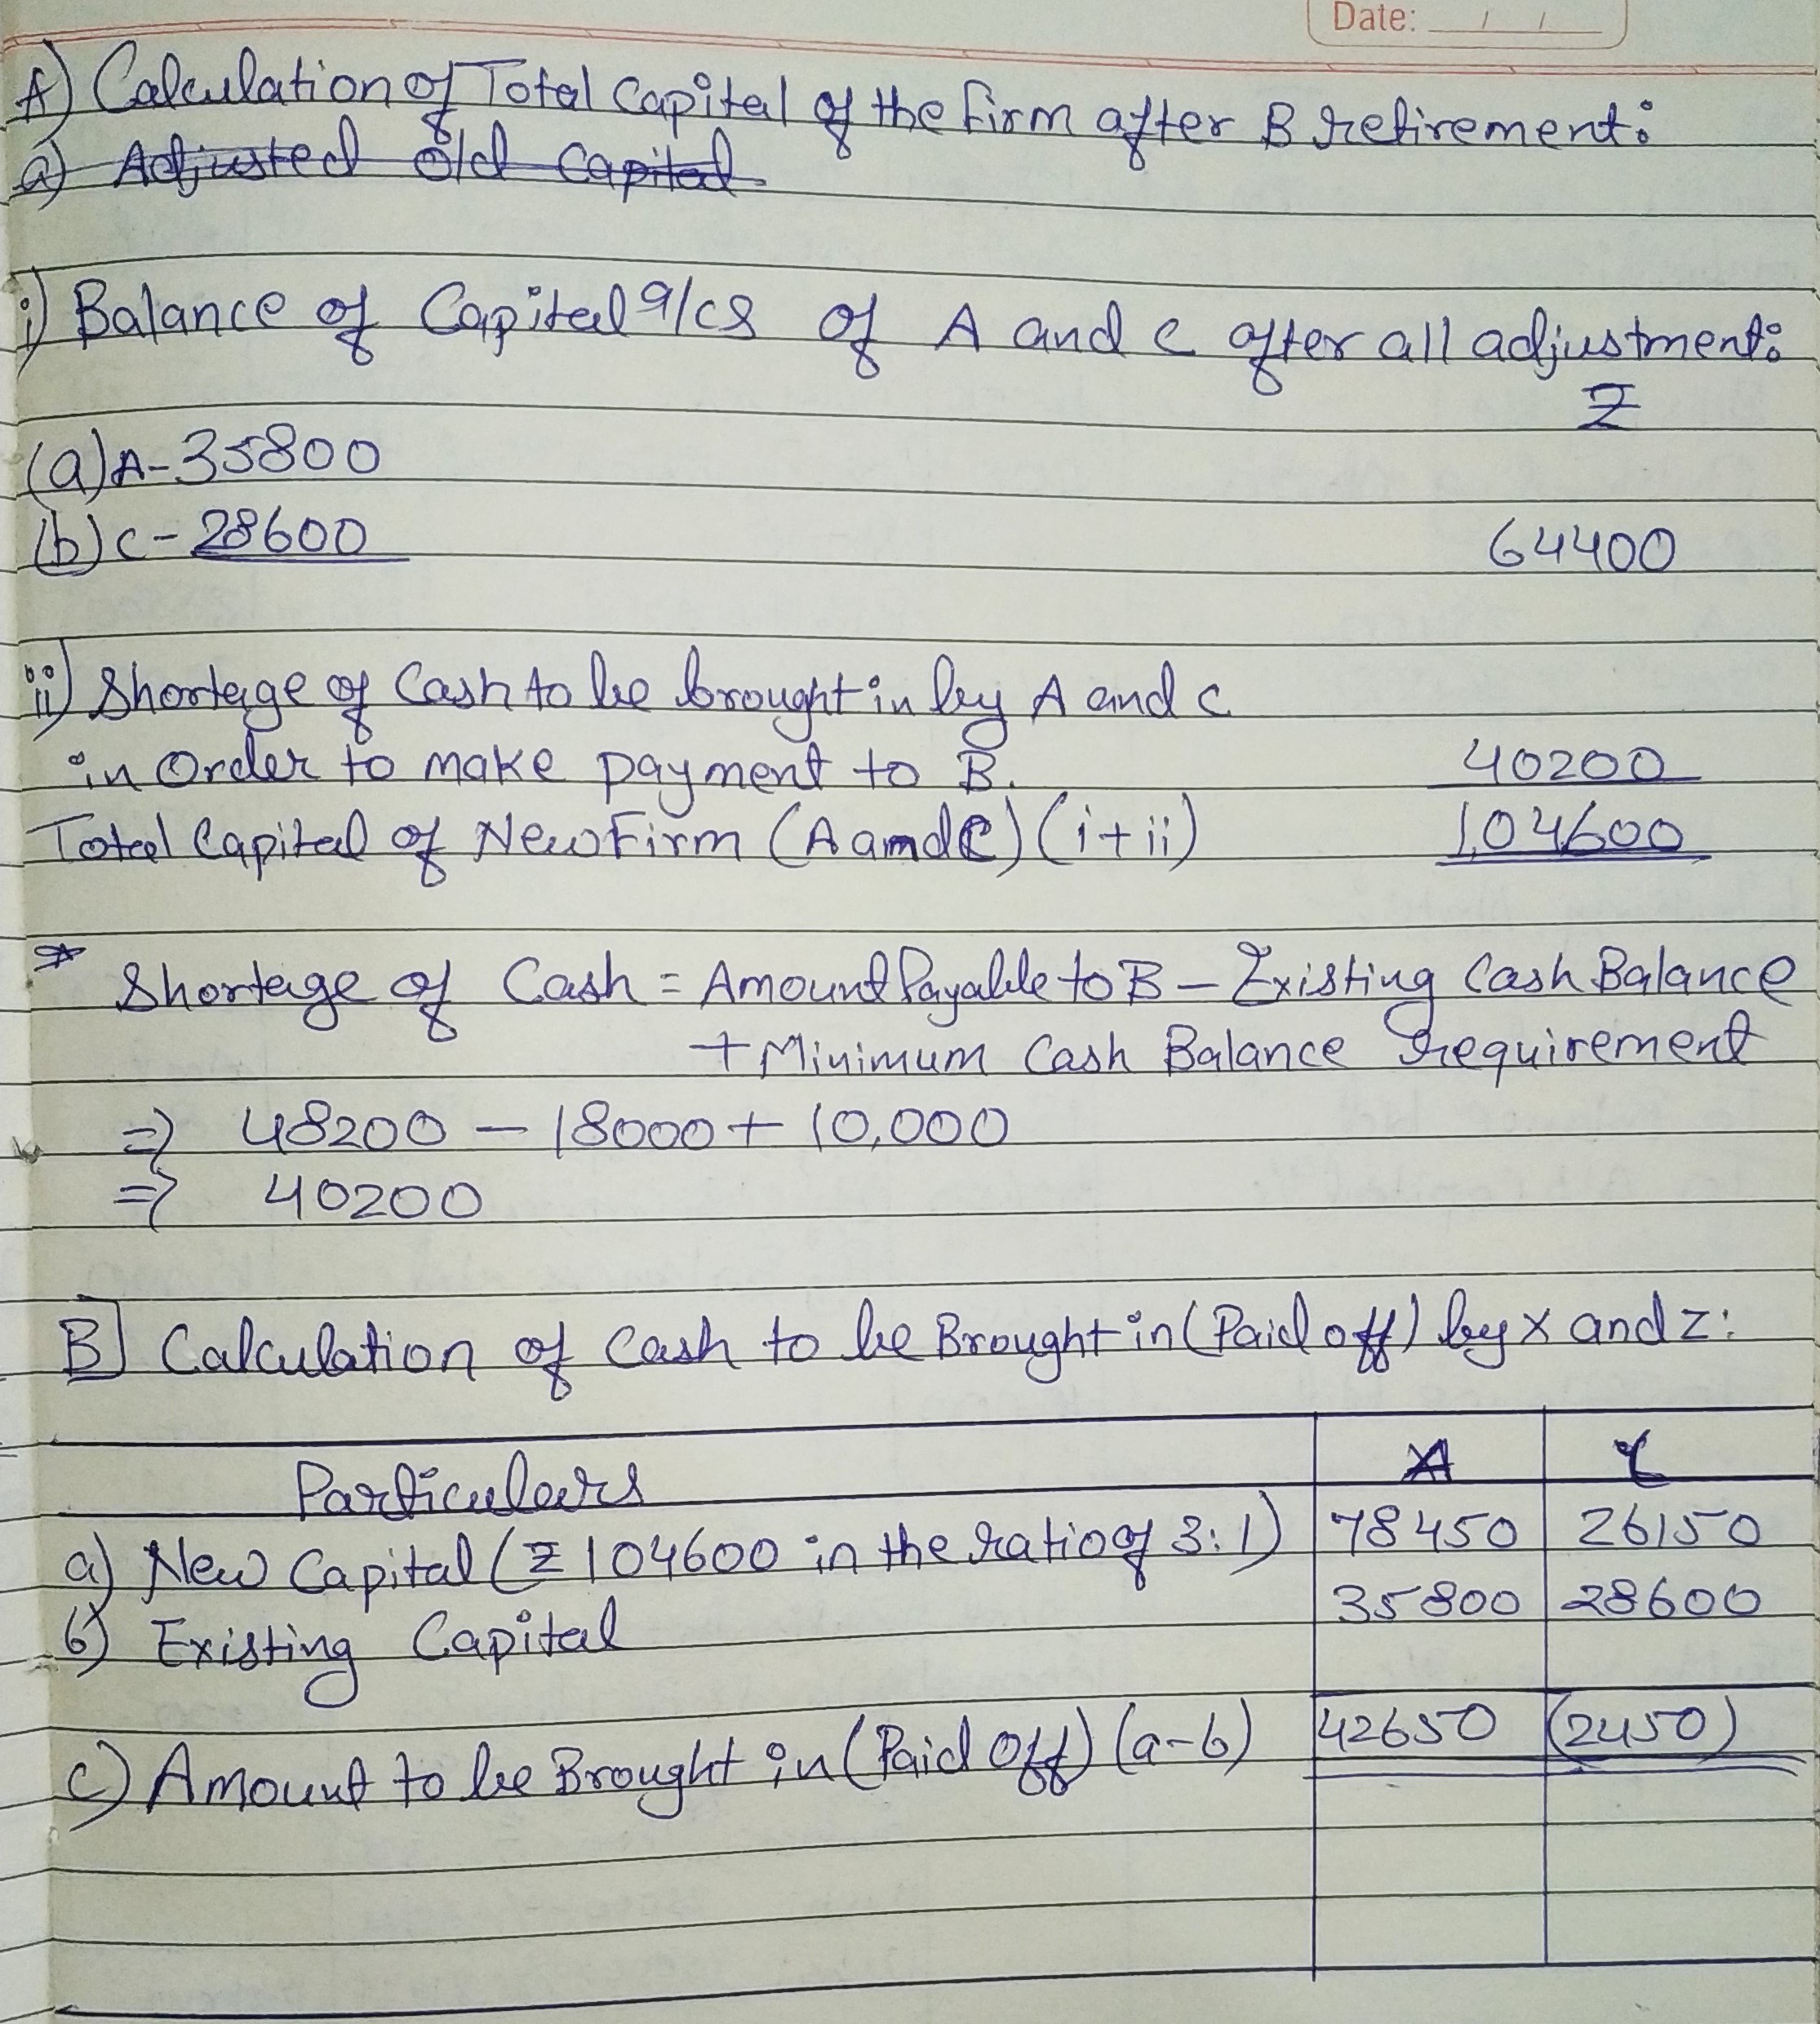 Date: / /
A) Calculation of Total Capital of the Firm after B retirement:
a) Adjusted old Capital
i) Balance of Capital A/cs of A and C after all adjustment:
₹
(a) A- 35800
(b) C- 28600 64400
ii) Shortage of Cash to be brought in by A and C
in Order to make payment to B. 40200
Total Capital of New Firm (A and C) (i+ii) 1,04600
* Shortage of Cash = Amount Payable to B - Existing Cash Balance
+ Minimum Cash Balance requirement
=> 48200 - 18000 + 10,000
=> 40200
B] Calculation of Cash to be Brought in (Paid off) by X and Z:
Particulars A C
a) New Capital (₹ 104600 in the ratio of 3:1) 78450 26150
b) Existing Capital 35800 28600
c) Amount to be Brought in (Paid Off) (a-b) 42650 (2450)